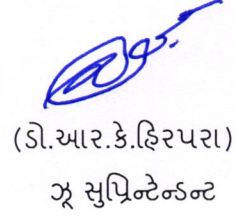 (ડો.આર.કે.હિરપરા)
ઝૂ સુપ્રિન્ટેન્ડન્ટ